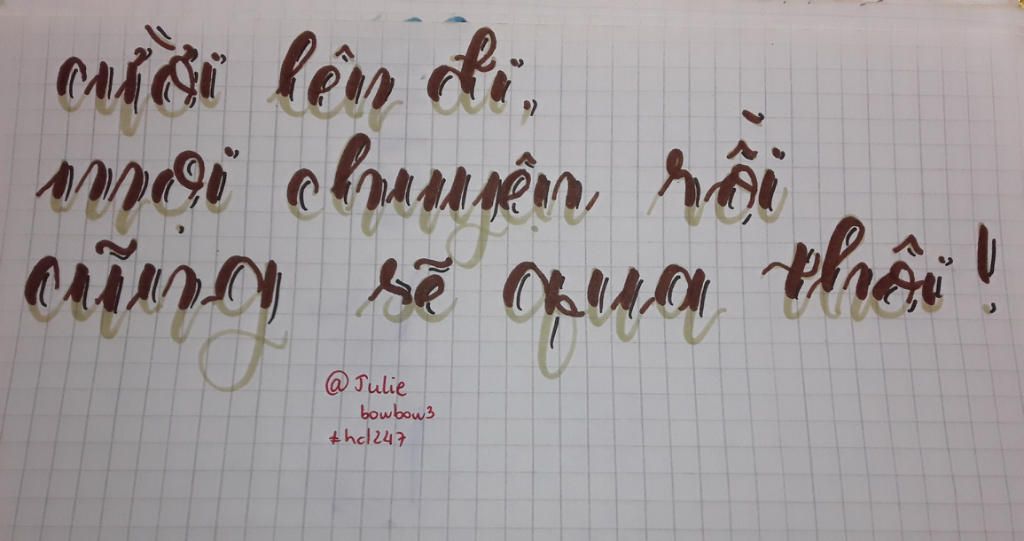 cười lên đi,
mọi chuyện rồi
cũng sẽ qua thôi!
@Julie
bowbow3
#hcl247